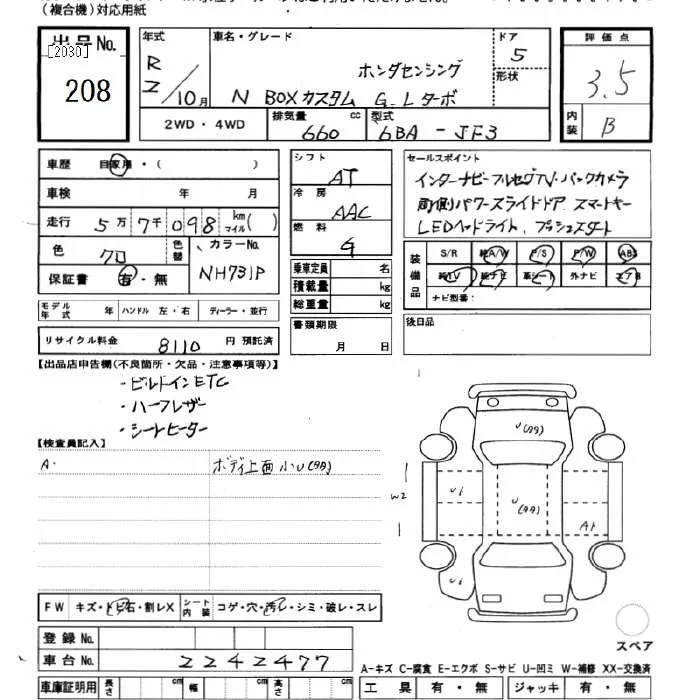 (複合機)対応用紙
出品No. [2030] 208
年式 R2/10月
車名・グレード ホンダセンシング
N BOXカスタム G・Lターボ
ドア 5
形状
評価点 3.5
内装 B
2WD・4WD 排気量 660 cc 型式 6BA-JF3
車歴 自家用・( )
車検 年 月
走行 5万7千098 km マイル( )
色 クロ 色替 カラーNo. NH731P
保証書 有・無
モデル年式 年 ハンドル 左・右 ディーラー・並行
リサイクル料金 8110 円 預託済
シフト AT
冷房 AAC
燃料 G
乗車定員 名
積載量 kg
総重量 kg
書類期限
月 日
セールスポイント
インターナビ フルセグTV・バックカメラ
両側パワースライドドア スマートキー
LEDヘッドライト、プッシュスタート
装備品 S/R 純A/W P/S P/W ABS
純TV 純ナビ 革シート 外ナビ エアB
ナビ型番:
後日品
【出品店申告欄(不良箇所・欠品・注意事項等)】
・ビルドインETC
・ハーフレザー
・シートヒーター
【検査員記入】
A・ ボディ上面小U(タタ)
U(タタ)
W2 U1 U(タタ) A1
U1
FW キズ・トビ石・割レX シート内装 コゲ・穴・汚レ・シミ・破レ・スレ
スペア
登録No.
車台No. 2242477
A-キズ C-腐食 E-エクボ S-サビ U-凹ミ W-補修 XX-交換済
車庫証明用 長さ cm 幅 cm 高さ cm
工具 有・無 ジャッキ 有・無